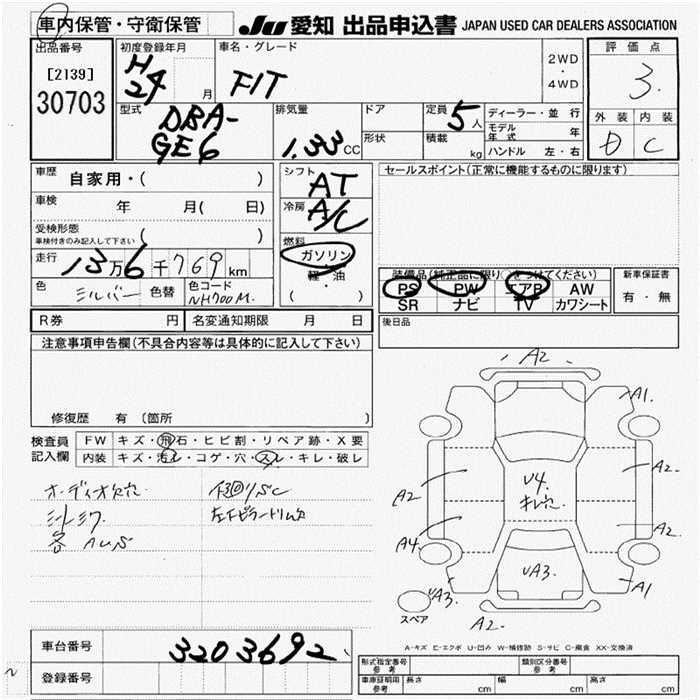 車内保管・守衛保管
JU 愛知 出品申込書 JAPAN USED CAR DEALERS ASSOCIATION
出品番号
[2139]
30703
初度登録年月
H24 月
車名・グレード
FIT
2WD
・
4WD
評価点
3.
外装 内装
D C
型式
DBA-
GE6
排気量
1.33 CC
ドア
形状
定員 5人
積載 kg
ディーラー・並行
モデル年式 年
ハンドル 左・右
車歴 自家用・( )
車検 年 月( 日)
受検形態
車検付きのみ記入して下さい ( )
走行 13万6千769km
色 シルバー 色替 色コード NH700M.
シフト AT
冷房 A/C
燃料
ガソリン
軽・油
( )
セールスポイント(正常に機能するものに限ります)
装備品(純正品に限り○をつけてください)
PS PW エアB AW
SR ナビ TV カワシート
新車保証書
有・無
後日品
R券 円 名変通知期限 月 日
注意事項申告欄(不具合内容等は具体的に記入して下さい)
修復歴 有 〔箇所 〕
検査員記入欄
FW キズ・飛石・ヒビ割・リペア跡・X要
内装 キズ・汚レ・コゲ・穴・スレ・キレ・破レ
オーディオ欠穴
シートシワ
各AUS
下廻りSC
左下ピラードリムス
A2
A1.
A2
A2.
U4.
キレ穴.
A4.
A2.
UA3.
UA3.
A1
スペア
A2-
A-キズ E-エクボ U-凹み W-補修跡 S-サビ C-腐食 XX-交換済
車台番号 3203692
登録番号
形式指定番号
参考
類別区分番号
参考
車庫証明用
参考
長さ cm 幅 cm 高さ cm